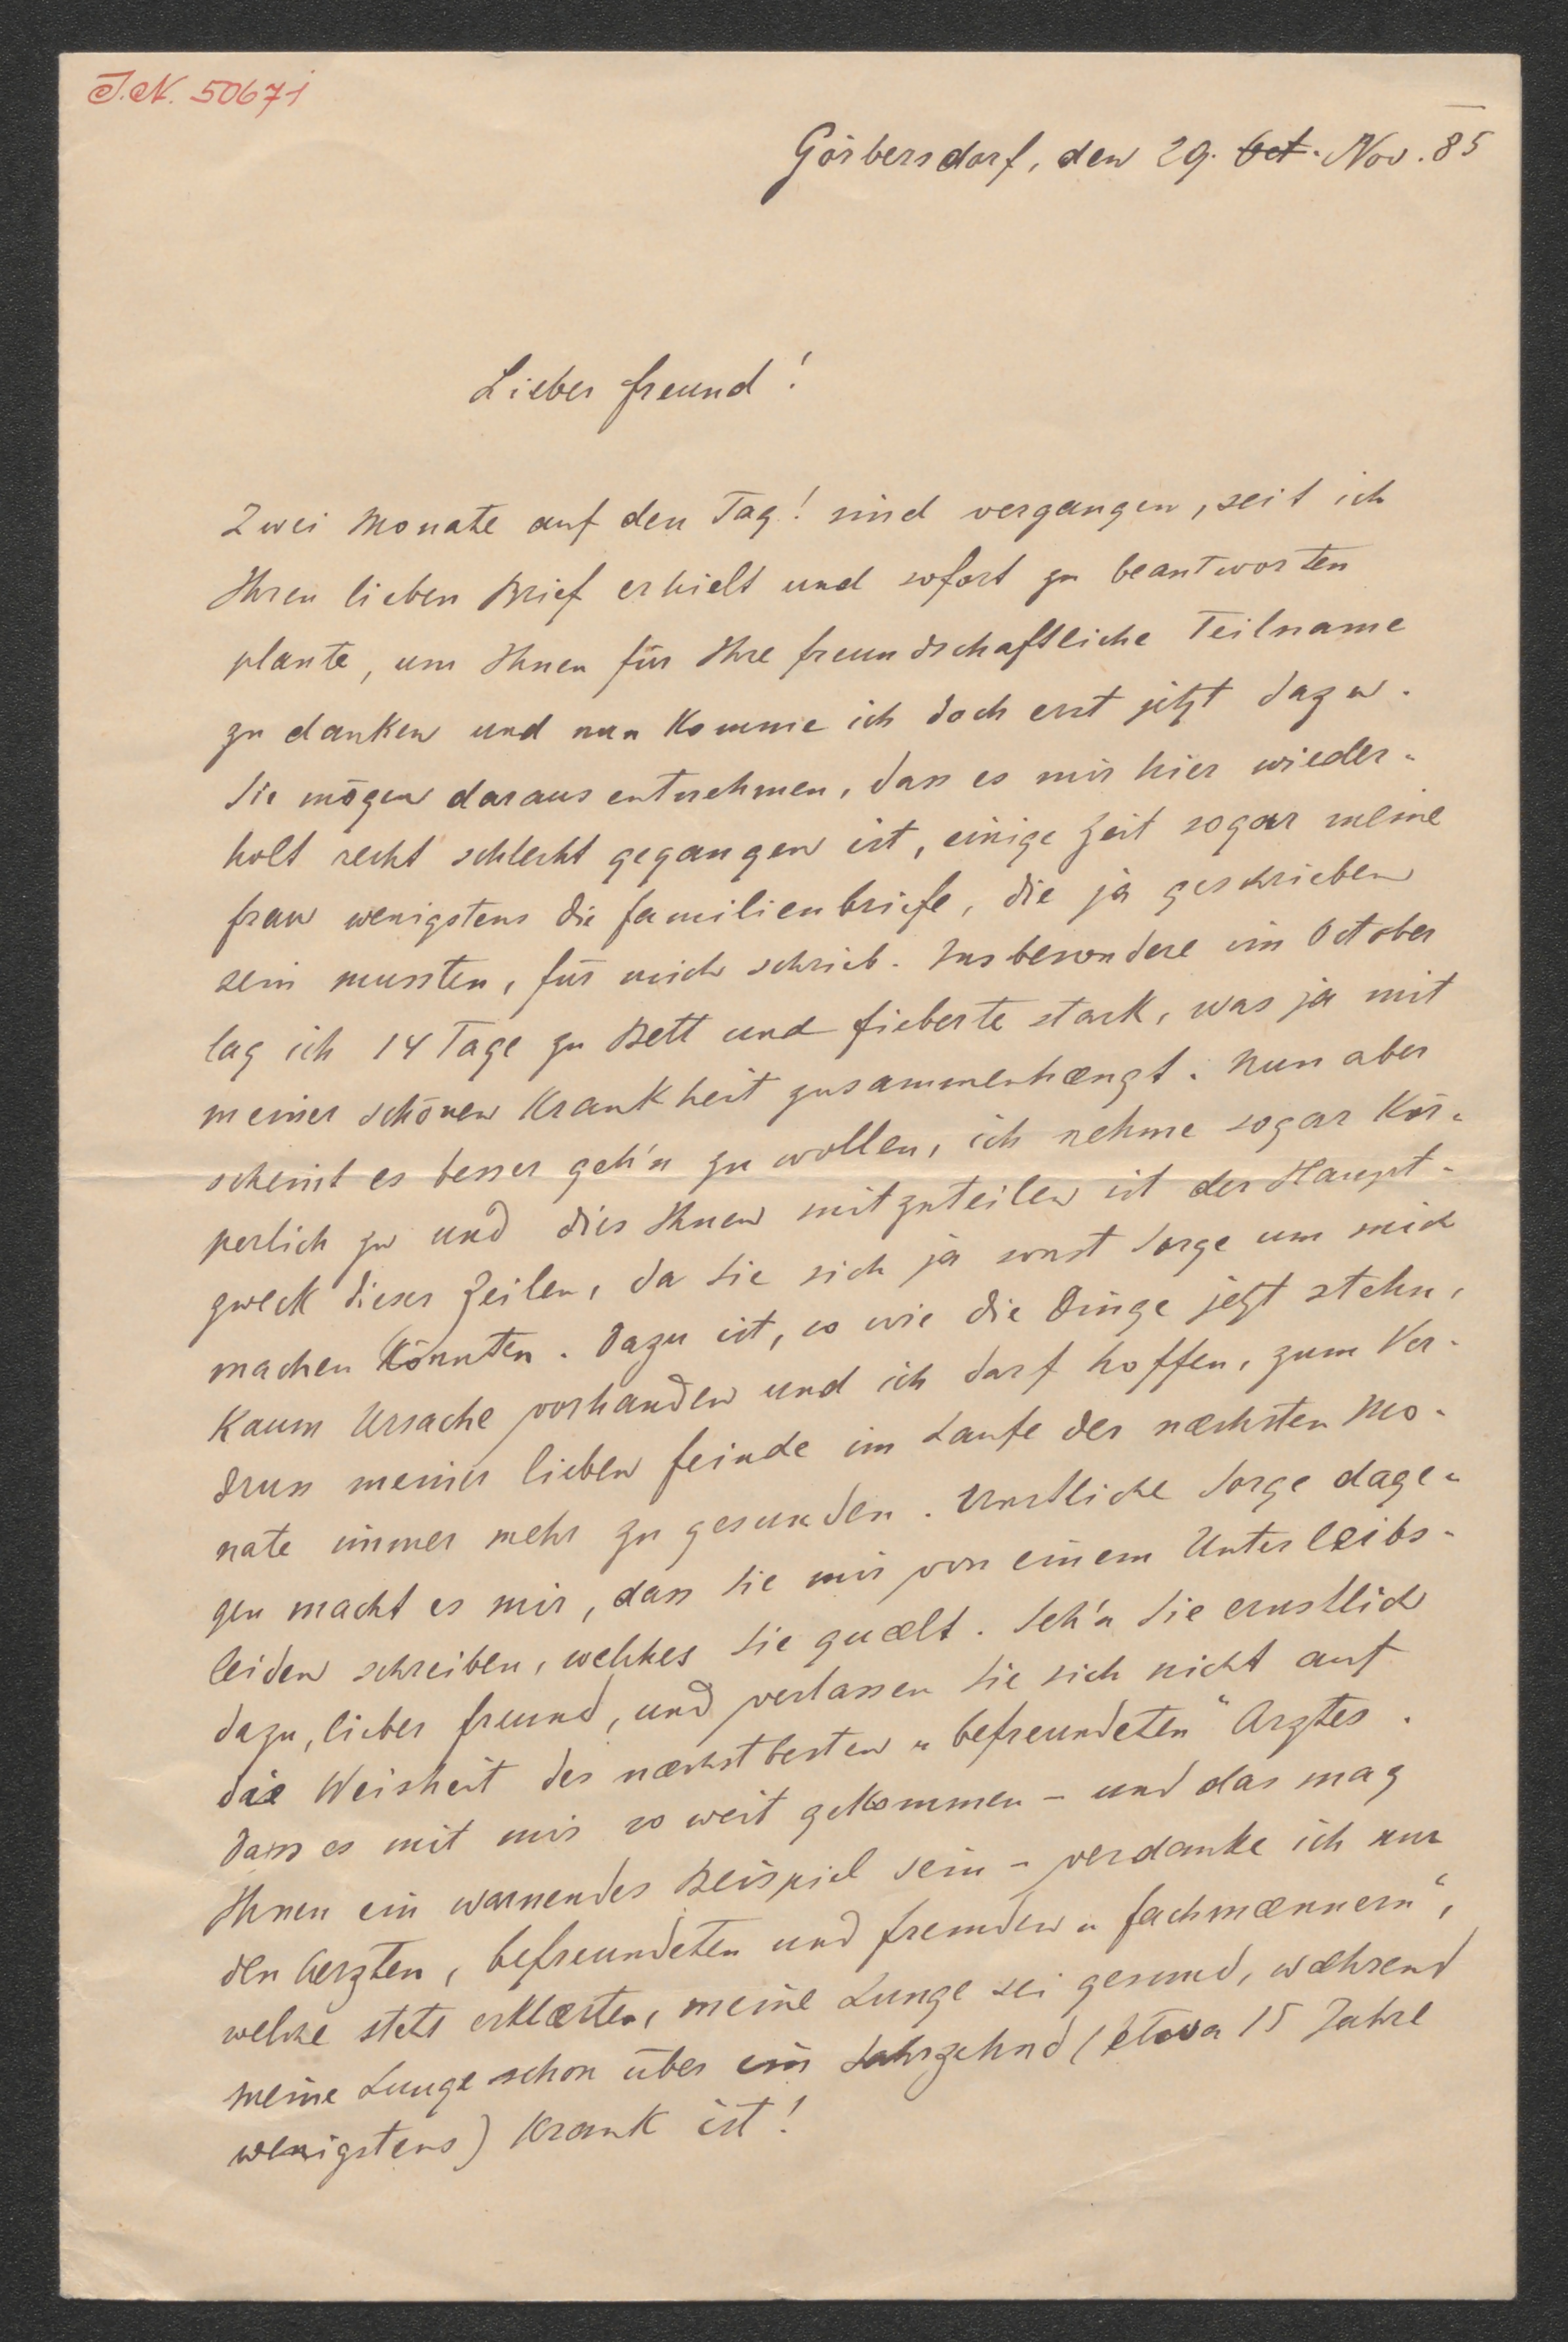 I.N. 50671
Görbersdorf, den 29. Oct. Nov. 85
Lieber Freund!
Zwei Monate auf den Tag! sind vergangen, seit ich
Ihren lieben Brief erhielt und sofort zu beantworten
plante, um Ihnen für Ihre freundschaftliche Teilname
zu danken und nun komme ich doch erst jetzt dazu.
Sie mögen daraus entnehmen, dass es mir hier wieder-
holt recht schlecht gegangen ist, einige Zeit sogar meine
Frau wenigstens die Familienbriefe, die ja geschrieben
sein mussten, für mich schrieb. Insbesondere im October
lag ich 14 Tage zu Bett und fieberte stark, was ja mit
meiner schönen Krankheit zusammenhængt. Nun aber
scheint es besser geh'n zu wollen, ich nehme sogar kör-
perlich zu und dies Ihnen mitzuteilen ist der Haupt-
zweck dieser Zeilen, da Sie sich ja sonst Sorge um mich
machen könnten. Dazu ist, so wie die Dinge jetzt stehn,
kaum Ursache vorhanden und ich darf hoffen, zum Ver-
druss meiner lieben Feinde im Laufe der næchsten Mo-
nate immer mehr zu gesunden. Ernstliche Sorge dage-
gen macht es mir, dass Sie mir von einem Unterleibs-
leiden schreiben, welches Sie quælt. Seh'n Sie ernstlich
dazu, lieber Freund, und verlassen Sie sich nicht auf
die Weisheit des næchstbesten „befreundeten“ Arztes.
Dass es mit mir so weit gekommen – und das mag
Ihnen ein warnendes Beispiel sein – verdanke ich nur
den Aerzten, befreundeten und fremden „Fachmænnern“,
welche stets erklærten, meine Lunge sei gesund, wæhrend
meine Lunge schon über ein Jahrzehnd (etwa 15 Jahre
wenigstens) krank ist!